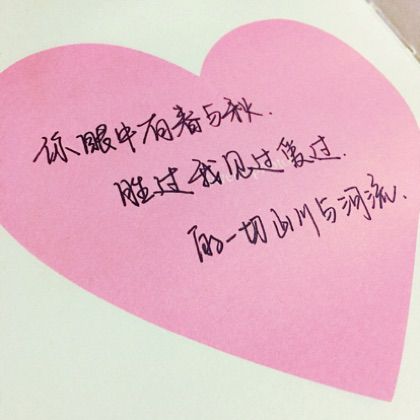 你眼中有春与秋.
胜过我见过爱过.
的一切山川与河流.